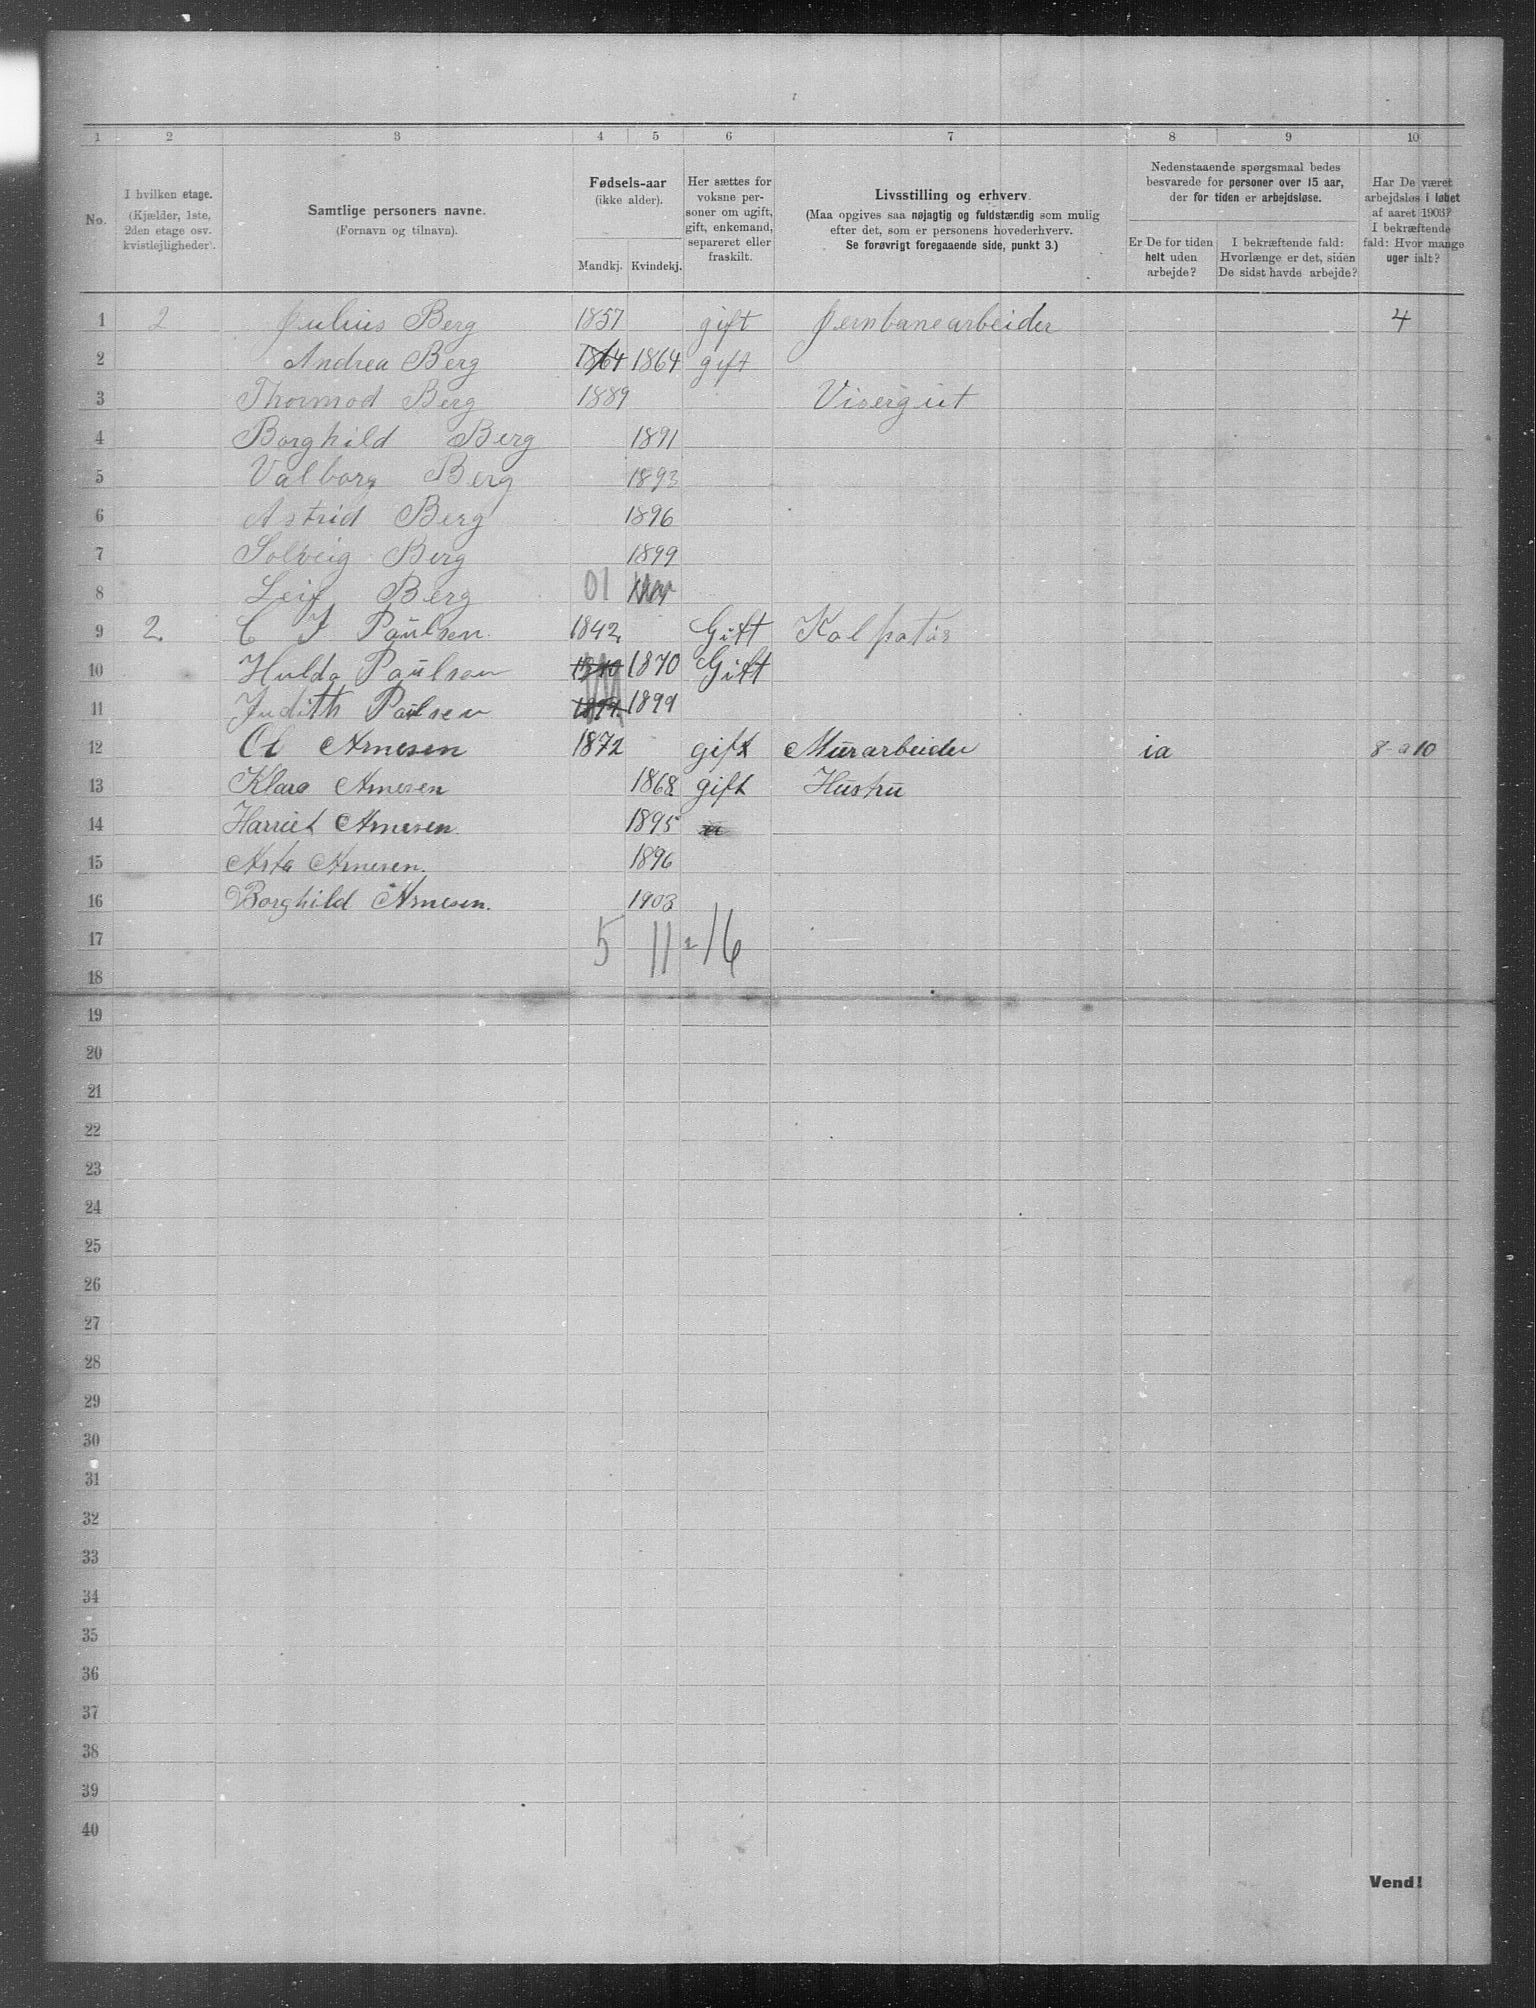 1 2 3 4 5 6 7 8 9 10
No.
I hvilken etage.
(Kjælder, 1ste,
2den etage osv.
kvistlejligheder).
Samtlige personers navne.
(Fornavn og tilnavn).
Fødsels-aar
(ikke alder).
Mandkj. Kvindekj.
Her sættes for
voksne per-
soner om ugift,
gift, enkemand,
separeret eller
fraskilt.
Livsstilling og erhverv.
(Maa opgives saa nøjagtig og fuldstændig som mulig
efter det, som er personens hovederhverv.
Se forøvrigt foregaaende side, punkt 3.)
Nedenstaaende spørgsmaal bedes
besvarede for personer over 15 aar,
der for tiden er arbejdsløse.
Er De for tiden
helt uden
arbejde?
I bekræftende fald:
Hvorlænge er det, siden
De sidst havde arbejde?
Har De været
arbejdsløs i løbet
af aaret 1903?
I bekræftende
fald: Hvor mange
uger ialt?
1 2 Julius Berg 1857 gift Jernbanearbeider 4
2 Andrea Berg 1864 1864 gift
3 Thormod Berg 1889 Visergut
4 Borghild Berg 1891
5 Valborg Berg 1893
6 Astrid Berg 1896
7 Solveig Berg 1899
8 Leif Berg 01
9 2. C J Paulsen 1842. Gift
10 Hulda Paulsen 1870 Gift
11 Judith Paulsen 1899
12 Ol Arnesen 1872 gift Murarbeider ia 8-a10
13 Klara Arnesen 1868 gift Hustru
14 Harriet Arnesen 1895
15 Asta Arnesen. 1896
16 Borghild Arnesen. 1903
17 5 11 = 16
18
19
20
21
22
23
24
25
26
27
28
29
30
31
32
33
34
35
36
37
38
39
40
Vend!